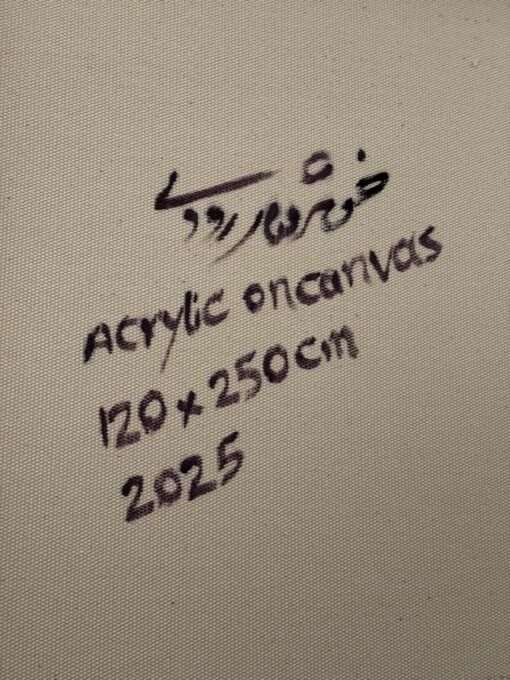 Acrylic on canvas
120 x 250 cm
2025